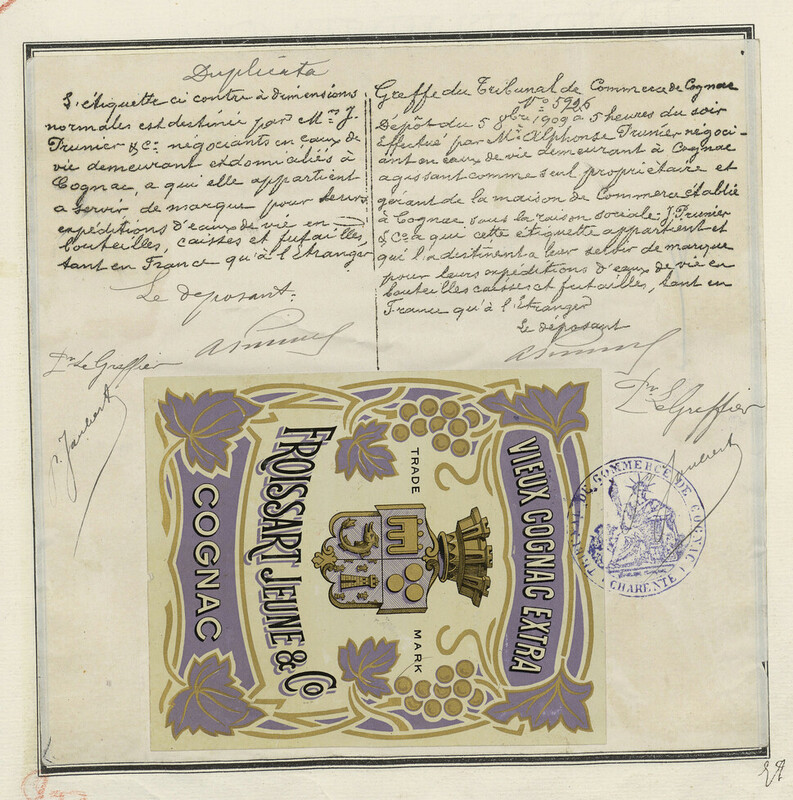 Duplicata
L'étiquette ci contre à dimensions
normales est destinée par Mrs J.
Prunier & Cie négociants en eaux de
vie demeurant et domiciliés à
Cognac, a qui elle appartient
a servir de marque pour leurs
expéditions d'eaux de vie en
bouteilles, caisses et futailles,
tant en France qu'à l'étranger
Le déposant.
Pr Le Greffier
APrunier
P. Jaubert
Greffe du Tribunal de Commerce de Cognac
No 5926
Dépôt du 5 9bre 1909 a 5 heures du soir
Effectué par Mr Alphonse Prunier négoci-
ant en eaux de vie demeurant à Cognac
agissant comme seul propriétaire et
gérant de la maison de Commerce établie
à Cognac sous la raison sociale J. Prunier
& Co a qui cette étiquette appartient et
qui l'a destinent a leur servir de marque
pour leurs expéditions d'eaux de vie en
bouteilles caisses et futailles, tant en
France qu'à l'Etranger
Le déposant
APrunier
Pr Le Greffier
Jaubert
VIEUX COGNAC EXTRA
TRADE MARK
FROISSART JEUNE & Co
COGNAC
TRIBUNAL DE COMMERCE DE COGNAC
(CHARENTE)